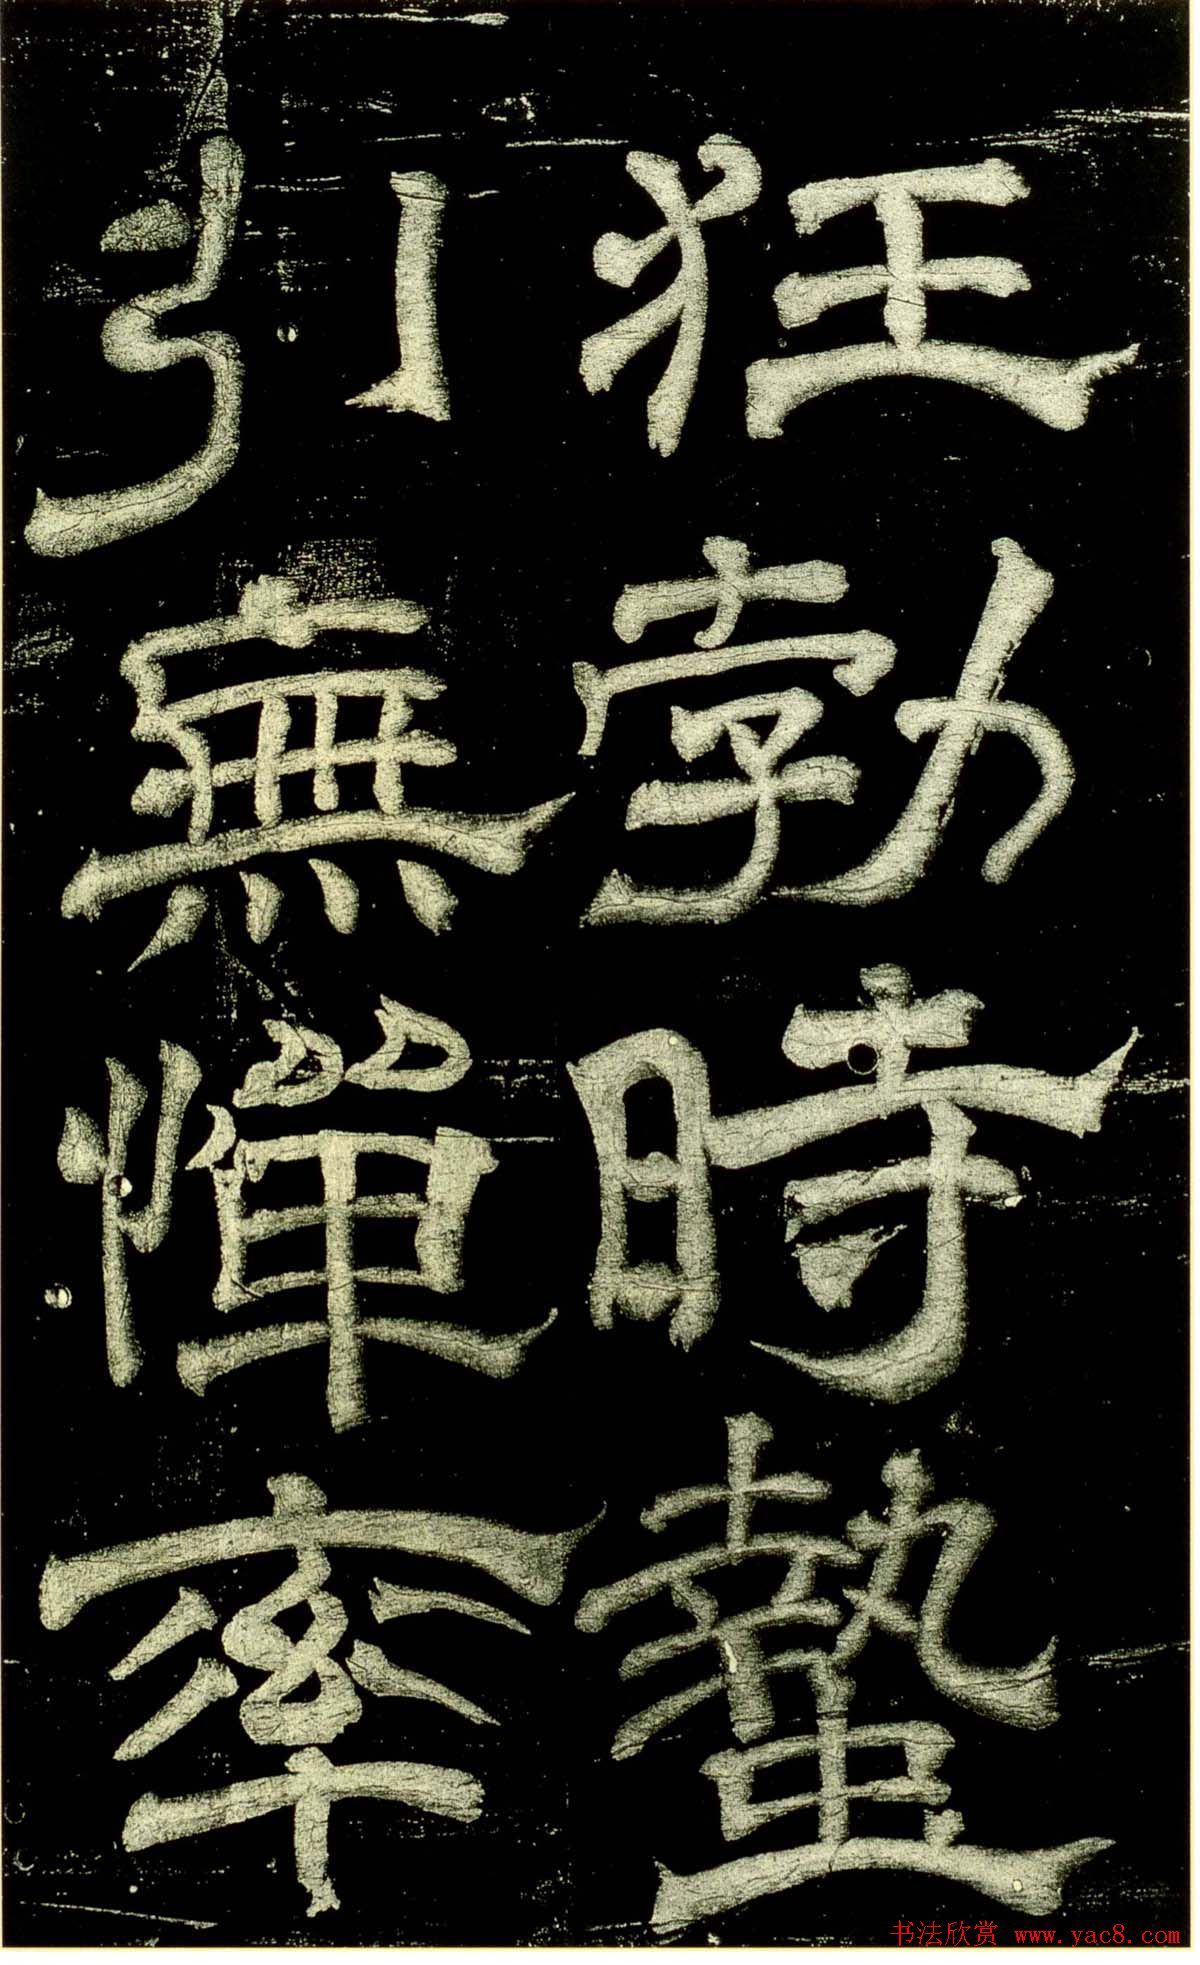 狂勃時蟄
引無憚率
书法欣赏 www.yac8.com